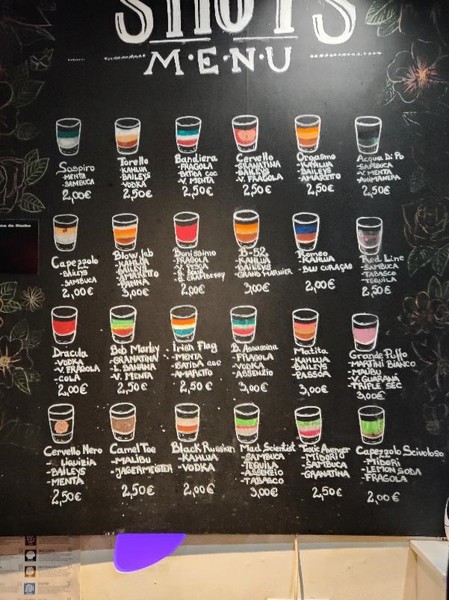 SHOTS
M·E·N·U
Sospiro
-MENTA
-SAMBUCA
2,00€
Torello
-KAHLUA
-BAILEYS
-VODKA
2,50€
Bandiera
-FRAGOLA
-BATIDA COC
-V. MENTA
2,50€
Cervello
-GRANATINA
-BAILEYS
-V. FRAGOLA
2,50€
Orgasmo
-KAHLUA
-BAILEYS
-AMARETTO
2,50€
Acqua Di Po
-SAMBUCA
-V. MENTA
2,50€
Capezzolo
-BAILEYS
-SAMBUCA
2,00€
Blow Job
-KAHLUA
-BAILEYS
-AMARETTO
-PANNA
3,00€
FRAGOLA
-V. PESCA
2,00€
B-52
-KAHLUA
-BAILEYS
-GRAND MARNIER
3,00€
Romeo
-KAHLUA
-BLU CURAÇAO
2,00€
Red Line
-SAMBUCA
-TABASCO
-TEQUILA
2,50€
Dracula
-VODKA
-V. FRAGOLA
-COLA
2,00€
Bob Marley
-GRANATINA
-L. BANANA
-V. MENTA
2,50€
Irish Flag
-MENTA
-BATIDA COC
-AMARETTO
2,50€
B. Assassina
-FRAGOLA
-VODKA
-ASSENZIO
3,00€
Matita
-KAHLUA
-BAILEYS
-PASSOA
3,00€
Grande Puffo
-MARTINI BIANCO
-MALIBU
-V. GUARANA
-TRIPLE SEC
3,00€
Cervello Nero
-LIQUIRIZIA
-BAILEYS
-MENTA
2,50€
Camel Toe
-MALIBU
-JAGERMEISTER
2,50€
Black Russian
-KAHLUA
-VODKA
2,00€
Mad Scientist
-SAMBUCA
-TEQUILA
-ASSENZIO
-TABASCO
3,00€
Toxic Avenger
-MIDORI
-SAMBUCA
-GRANATINA
2,50€
Capezzolo Scivoloso
-MIDORI
-LEMON SODA
-FRAGOLA
2,00€